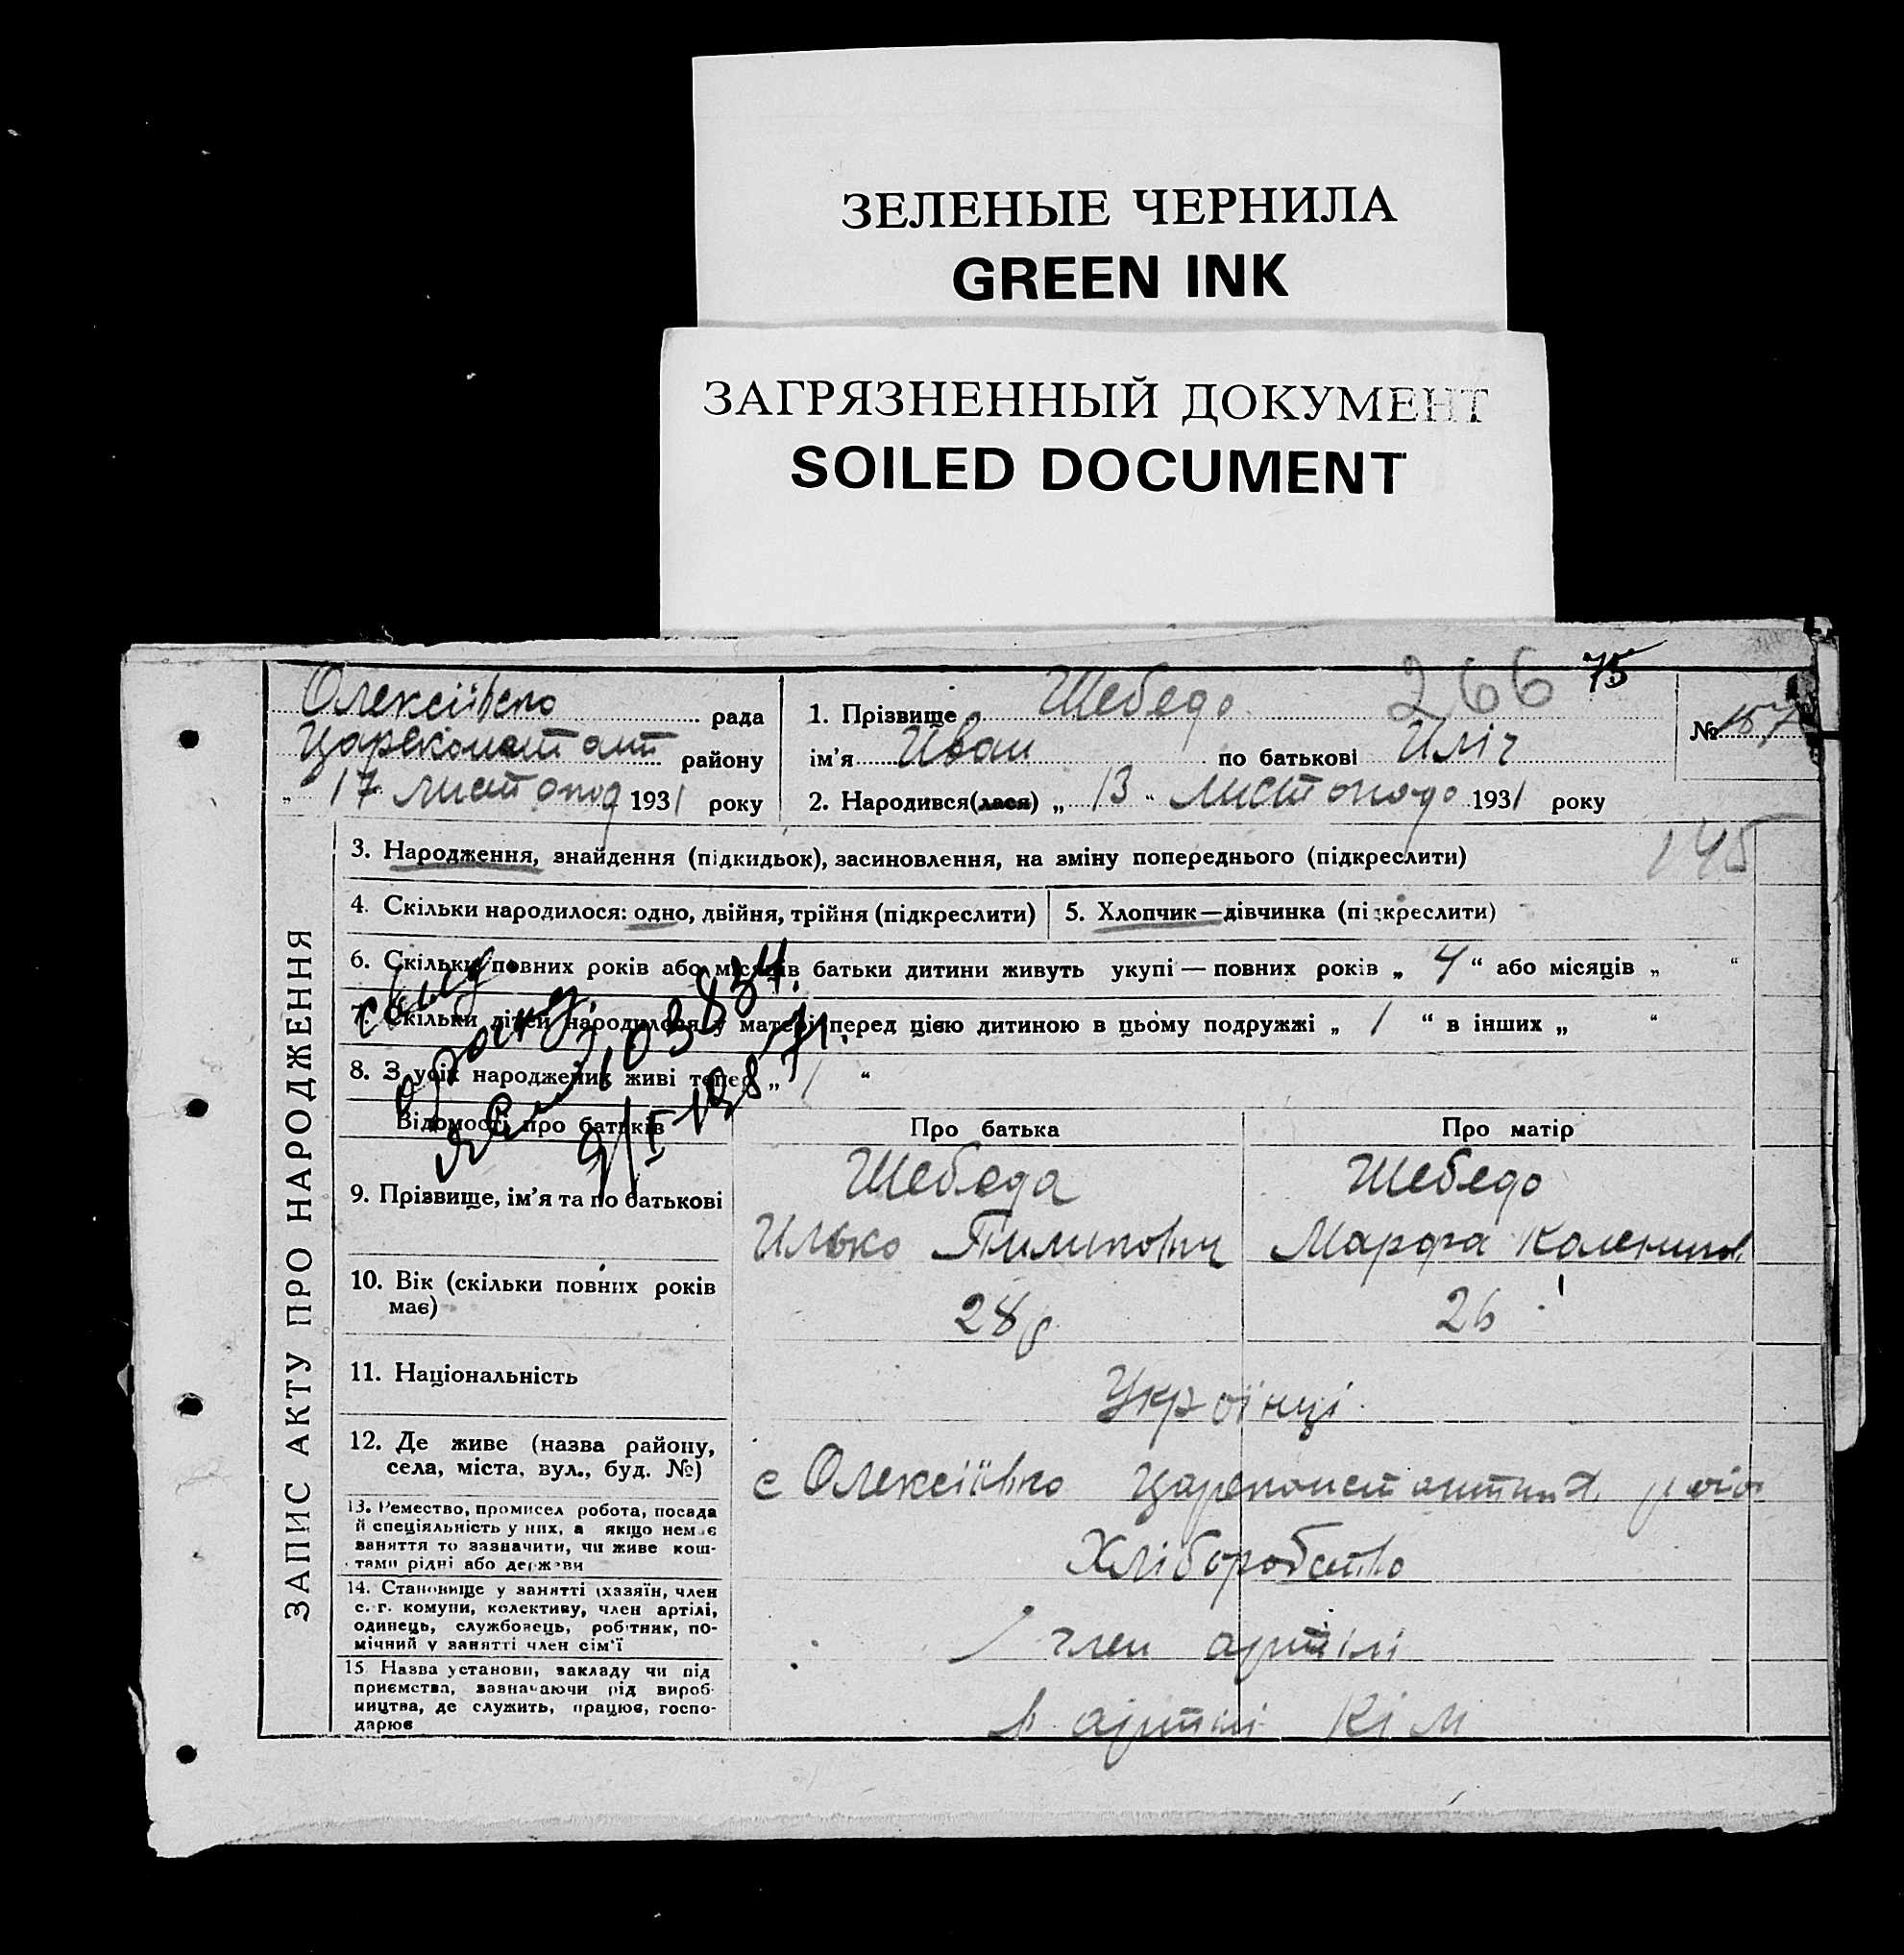 ЗЕЛЕНЫЕ ЧЕРНИЛА
GREEN INK
ЗАГРЯЗНЕННЫЙ ДОКУМЕНТ
SOILED DOCUMENT
266 75
Олексіївско рада
Цареконстант району
„ 17 листопод 1931 року
1. Прізвище Шебедо
ім'я Иван по батькові Иліч
2. Народився(лася) „ 13 “ листопадо 1931 року
№ 157
145
ЗАПИС АКТУ ПРО НАРОДЖЕННЯ
3. Народження, знайдення (підкидьок), засиновлення, на зміну попереднього (підкреслити)
4. Скільки народилося: одно, двійня, трійня (підкреслити)
5. Хлопчик—дівчинка (підкреслити)
6. Скільки повних років або місяців батьки дитини живуть укупі — повних років „ 4 “ або місяців „ “
7. Скільки дітей народилося у матері перед цією дитиною в цьому подружжі „ 1 “ в інших „ “
8. З усіх народжених живі тепер „ 1 “
Відомості про батьків
Про батька
Про матір
9. Прізвище, ім'я та по батькові
Шебеда
Илько Пилипович
Шебедо
Марфа Калеников
10. Вік (скільки повних років має)
28 р
26
11. Національність
Украінці
12. Де живе (назва району,
села, міста, вул., буд. №)
с Олексіївко
13. Ремество, промисел робота, посада
й спеціяльність у них, а якщо немає
заняття то зазначити, чи живе кош-
тами рідні або держави
Хліборобство
14. Становище у занятті (хазяїн, член
с.-г. комуни, колективу, член артілі,
одинець, службовець, робітник, по-
мічний у занятті член сім'ї
член артілі
15. Назва установи, закладу чи під
приємства, зазначаючи рід вироб-
ництва, де служить, працює, госпо-
дарює
в артілі Кім